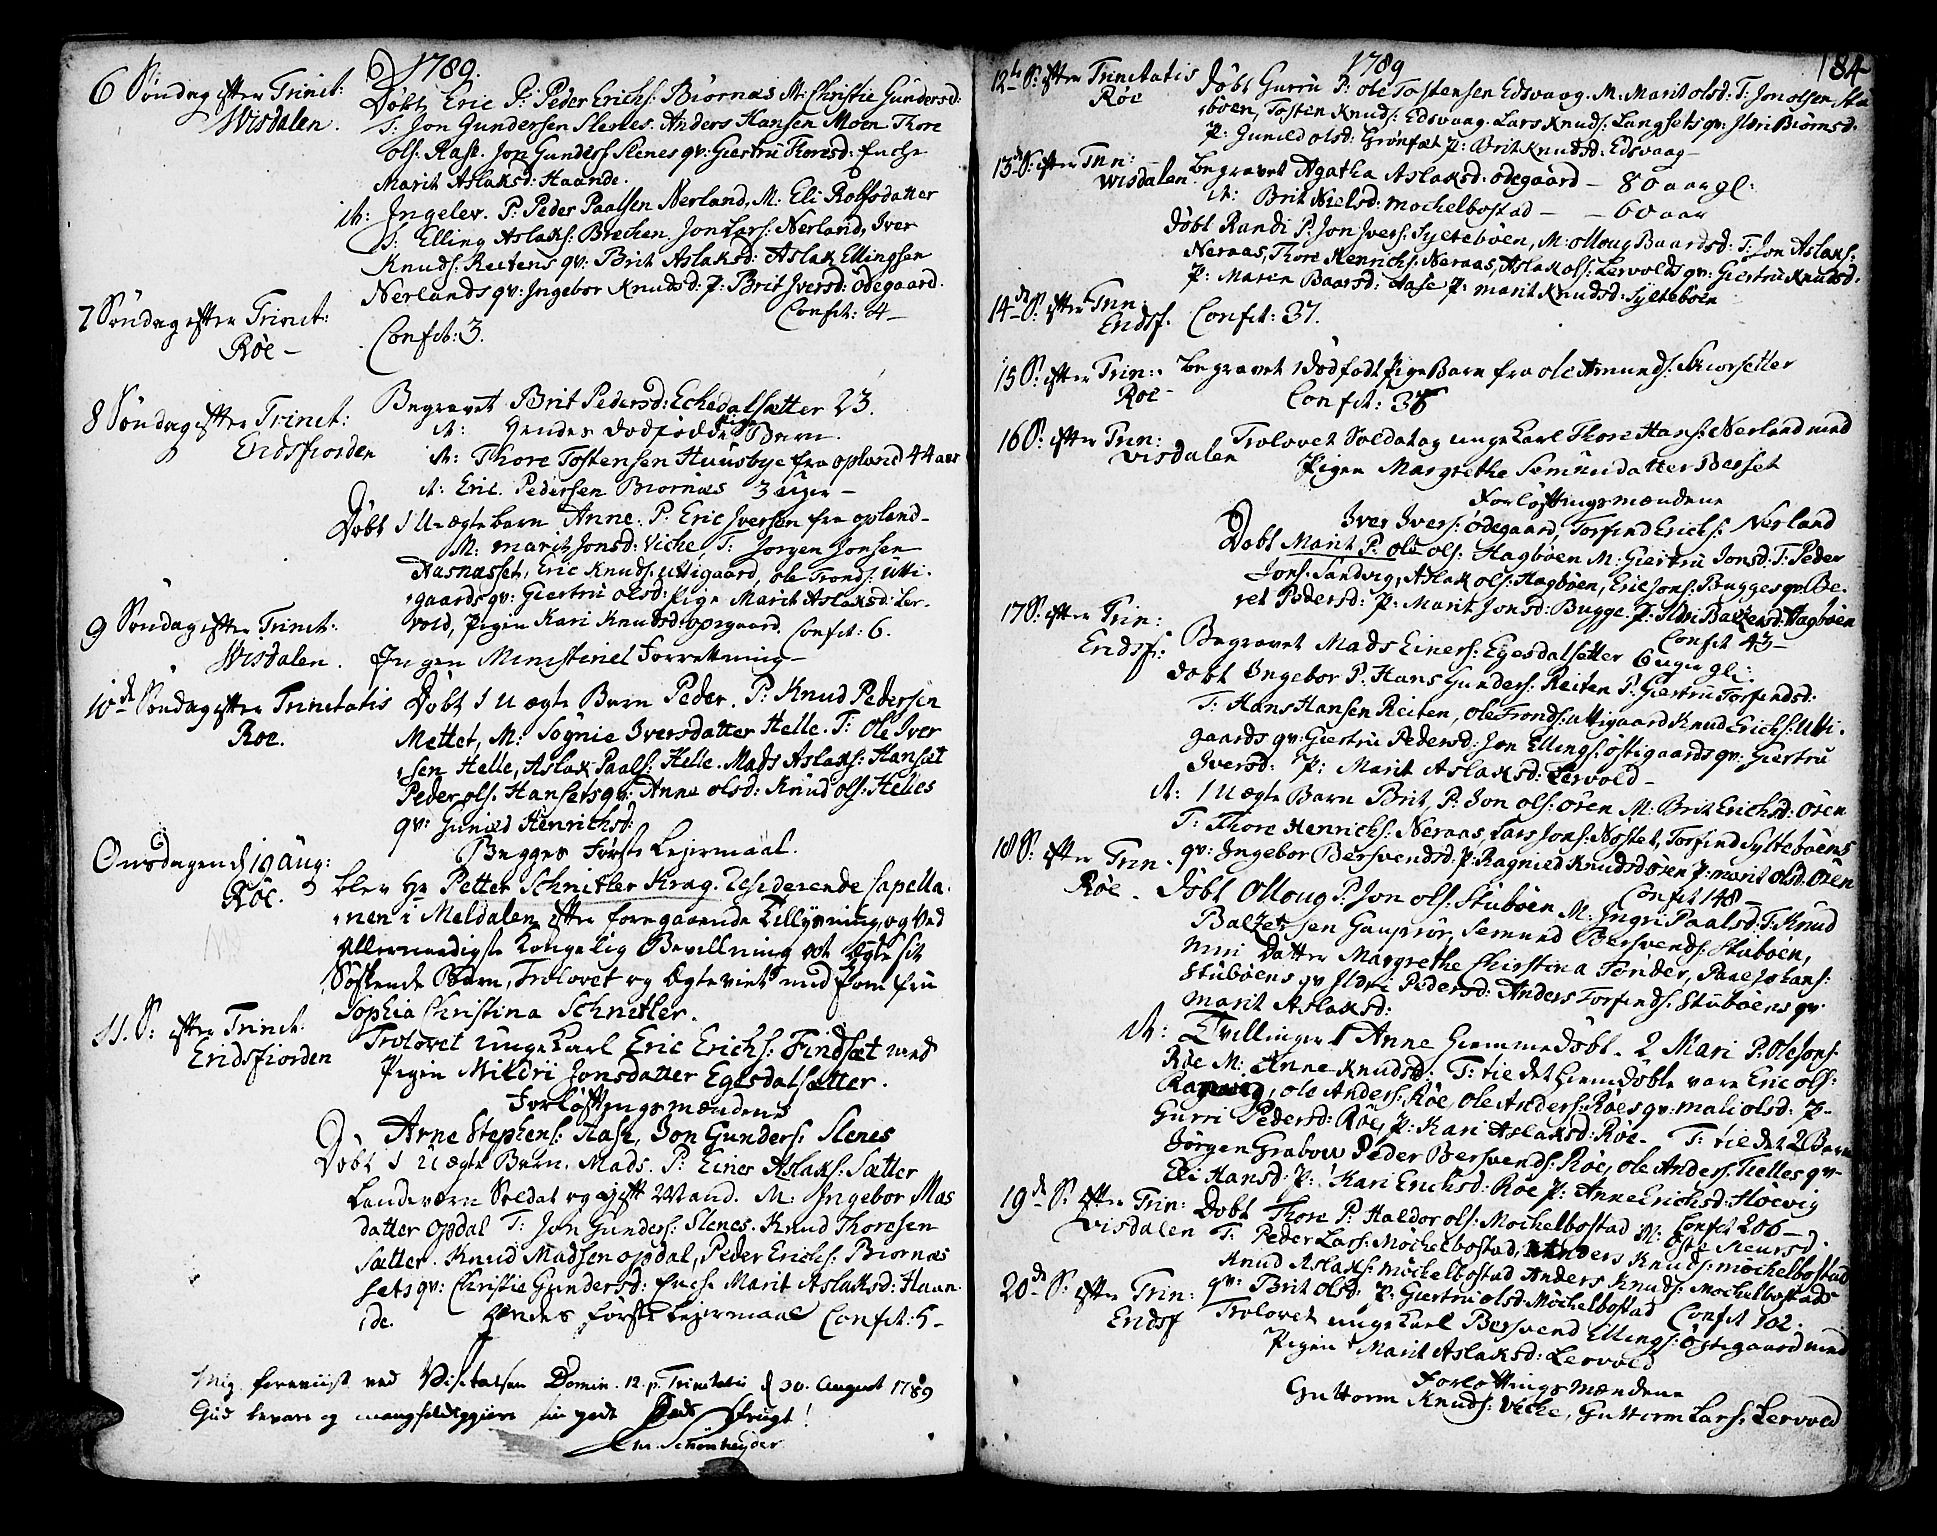 1789.
6 Søndag efter Trinit:
Wisdalen.
Døbt Eric P: Peder Erichs: Biørnæs M: Christie Gundersd:
T: Jon Gundersen Slenes. Anders Hansen Moen. Thore
ols: Rase. Jon Gunders: Slenes qv: Giertru Thoresd: Enche
Marit Aslaksd: Haande.
it: Ingelev. P: Peder Paalsen Nerland, M: Eli Rolfsdatter
T: Elling Aslaks: Brechen Jon Lars: Nerland, Iver
Knuds: Reitens qv: Brit Aslaksd: Aslak Ellingsen
Nerlands qv: Ingebor Knudsd: P: Brit Iversd: Ødegaard.
Confit: 4-
7 Søndag efter Trinit:
Røe-
Confit: 3.
8 Søndag efter Trinit:
Eridsfiorden
Begravet Brit Pedersd: Echedalsætter 23.
it: Hendes dødfødde Pige Barn.
it: Thore Tostensen Huusbye fra opland 44 aar
it: Eric Pedersen Biørnæs 3 uger-
Døbt 1 Uægte barn Anne. P: Eric Iversen fra opland-
M: marit Jonsd: Viche, T: Jørgen Jonsen
Aasnæsset, Eric Knuds: Uttigaard, ole Tronds: Utti-
gaards qv: Giertru olsd: Pige Marit Aslaksd: Ler-
vold, Pigen Kari Knudsd: opigaard. Confit: 6.
9 Søndag efter Trinit:
Wisdalen.
Ingen Ministeriel Forretning-
10de Søndag efter Trinitatis
Røe.
Døbt 1 uægte Barn Peder. P: Knud Pedersen
Mettet, M: Søgnie Iversdatter Helle. T: Ole Iver
sen Helle, Aslak Paals: Helle. Mads Aslaks: Hansæt
Peder ols: Hansets qv: Anne olsd: Knud ols: Helles
qv: Gunild Henrichsd:
Begges Første Leiermaal.
Onsdagen d 19 Aug:
Røe.
blev Hr Petter Schnitler Krag. Residerende Capella-
nen i Meldalen efter foregaaende Tillysning, og Ved
Allernaadigste Kongelig Bevillning at Ægte sit
Søskende Barn, Trolovet og Ægteviet med Jomfru
Sophia Christina Schnitler.
11. S: efter Trinit:
Eridsfiorden
Trolovet unge Karl Eric Erichs: Findsæt med
Pigen Mildri Jonsdatter Egesdalsætter.
Forløftningsmændene
Arne Stephens: Hase, Jon Gunders: Slenes
Døbt 1 uægte Barn. Mads. P: Einer Aslaks: Sætter
Landværn Soldat og gift Mand. M: Ingebor Mas
datter opdal T: Jon Gunders: Slenes. Knud Thoresen
Sætter. Knud Madsen opdal, Peder Erichs: Biørnæs
sets qv: Christie Gundersd: Enche Marit Aslaksd: Haan
de. Hendes første Leiermaal Confit: 5-
Mig foreviist ved Visitatsen Domin. 12. p: Trinitatis d 30. August 1789
Gud bevare og mangfoldiggiøre sin gode Sæds Frugt!
Chr. Schönheyder
1789
184
12te S: efter Trinitatis
Røe
Døbt Guru P: ole Tostensen Edsvaag. M: Marit olsd: T: Jon olsen, Stu
bøen, Tosten Knuds: Edsvaag. Lars Knuds: Langsets qv: Ildri Biørnsd:
P: Gunild olsd: Grønsæt P: Brit Knudsd: Edsvaag-
13de S: efter Trin:
Wisdalen
Begravet Agatha Aslaksd: ødegaard - 80 aar gl:
it: Brit Nielsd: Møchelbostad - - 60 aar
Døbt Randi P: Jon Ivers: Syltebøen, M: olloug Baardsd: T: Jon Aslaks:
Neraas, Thore Henrichs: Neraas, Aslak ols: Lervolds qv: Giertru Knudsd:
P: Maren Baarsd: Aase P: marit Knudsd: Syltebøen
14de S: efter Trin:
Eridsf.
Confit: 37.
15 S: efter Trin:
Røe
Begravet 1 dødfødt Pige Barn fra ole Amunds: Skorsetter
Confit: 38
16 S: efter Trin:
visdalen
Trolovet Soldat og unge Karl Thore Hans: Nerland med
Pigen Margrethe Semundatter Berset
Forløftningsmændene
Iver Ivers: ødegaard, Torfind Erichs: Nerland
Døbt Marit P: ole ols: Hagbøen M: Giertru Jonsd: T: Peder
Jons: Sandvig, Aslak ols: Hagbøen, Eric Jons: Bugges qv: Be-
ret Pedersd: P: Marit Jonsd: Bugge. P: Ildri Baltzersd: Hagbøen
Confit 43-
17 S: efter Trin:
Eridsf:
Begravet Mads Einers: Egesdalsetter 6 uger gl:
Døbt Ingebor P. Hans Gunders: Reiten P: Giertru Torfindsd:
T: Hans Hansen Reiten, ole Tronds: uttigaard Knud Erichs: Utti-
gaards qv: Giertru Pedersd: Jon Ellings: østigaards qv: Giertru
Iversd: P: Marit Aslaksd: Lervold-
it: 1 uægte Barn Brit, P: Jon ols: øren M: Brit Erichsd: Øren
T: Thore Henrichs: Neraas, Lars Jons: Nostet, Torfind Syltebøens
qv: Ingebor Bersvendsd: P: Ragnild Knudsd: øren P: marit olsd: Øren
Confit 148-
18 S: efter Trin.
Røe.
Døbt Olloug P: Jon ols: Stubøen M: Ingri Paalsd: T: Knud
Baltzersen Gauprør, Semund Bersvends: Stubøen,
min Datter Margrethe Christina Tønder, Paal Johans:
Stubøens qv Ildri Pedersd: Anders Torfinds: Stubøens qv:
Marit Aslaksd:
it: Tvillinger 1 Anne Hiemmedøbt. 2 Mari P. Ole Jons:
Røe M: Anne Knudsd: T: til det Hiemdøbte vare Eric ols:
ole Anders: Røe, ole Anders: Røes qv: mali olsd: P-
Gurri Pedersd: Røe, P: Kari Aslaksd: Røe- T: til det 2 Barn
Jørgen Grabow Peder Bersvends: Røe, ole Anders: Tielles qv-
Eli Hansd: P: Kari Erichsd: Røe P: Anne Erichsd: Høevig
Confit 206-
19de S: efter Trin:
visdalen
Døbt Thore P: Haldor ols: Møchelbostad M: Øste
T: Peder Lars: Møchelbostad, Anders Knuds: møchelbostad
Knud Aslaks: møchelbostad Anders Knuds: Møchelbostads
qv: Brit olsd: P: Giertru olsd: Møchelbostad Confit 102.
20de S: efter Trin:
Eridsf
Trolovet unge Karl Bersvend Ellings: Østigaard med
Pigen Marit Aslaksd: Lervold
Forløftnings Mændene
Guttorm Knuds: Viche, Guttorm Lars: Lervold